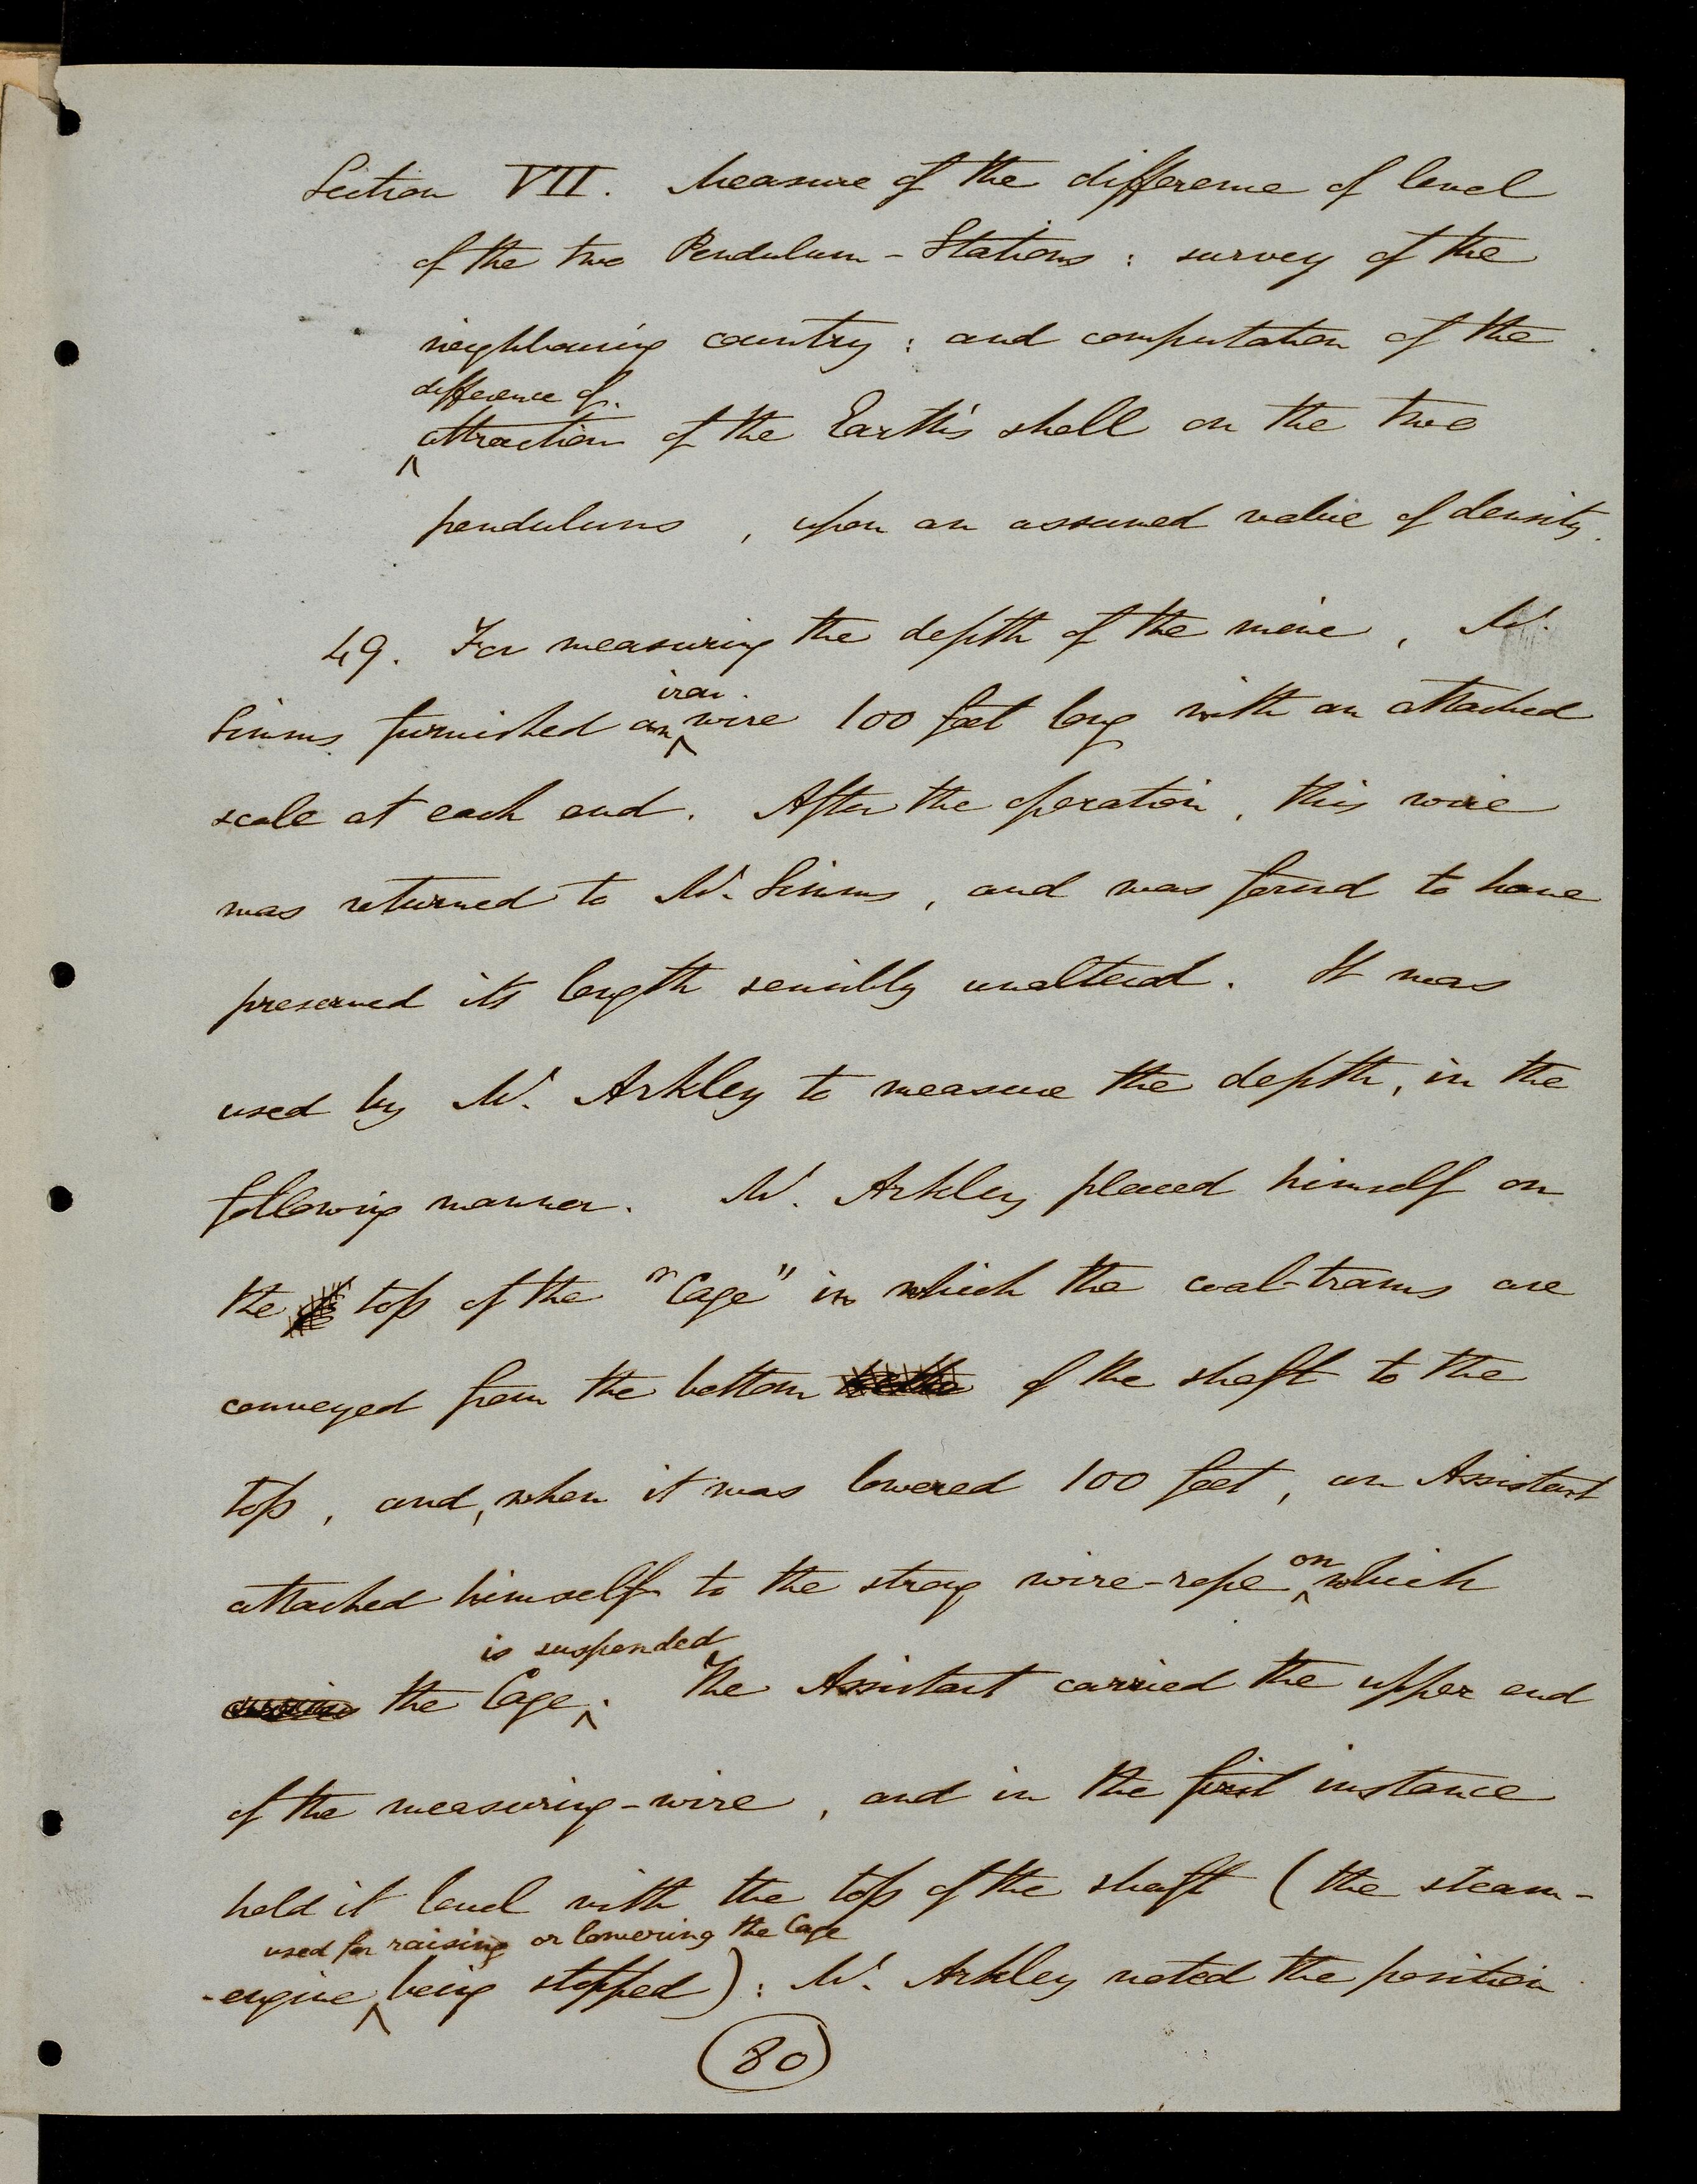 Section VII. Measure of the difference of level
of the two Pendulum-Stations: survey of the
neighbouring country: and computation of the
difference of
attraction of the Earth's shell on the two
pendulums, upon an assumed value of density.
49. For measuring the depth of the mine, Mr.
iron
Simms furnished an wire 100 feet long with an attached
scale at each end. After the operation, this wire
was returned to Mr. Simms, and was found to have
preserved its length sensibly unaltered. It was
used by Mr. Arkley to measure the depth, in the
following manner. Mr. Arkley placed himself on
the top of the "Cage" in which the coal-trams are
conveyed from the bottom of the shaft to the
top, and, when it was lowered 100 feet, an Assistant
on
attached himself to the strong wire-rope which
is suspended
the Cage. The Assistant carried the upper end
of the measuring-wire, and in the first instance
held it level with the top of the shaft (the steam-
used for raising or lowering the Cage
-engine being stopped): Mr. Arkley noted the position
80